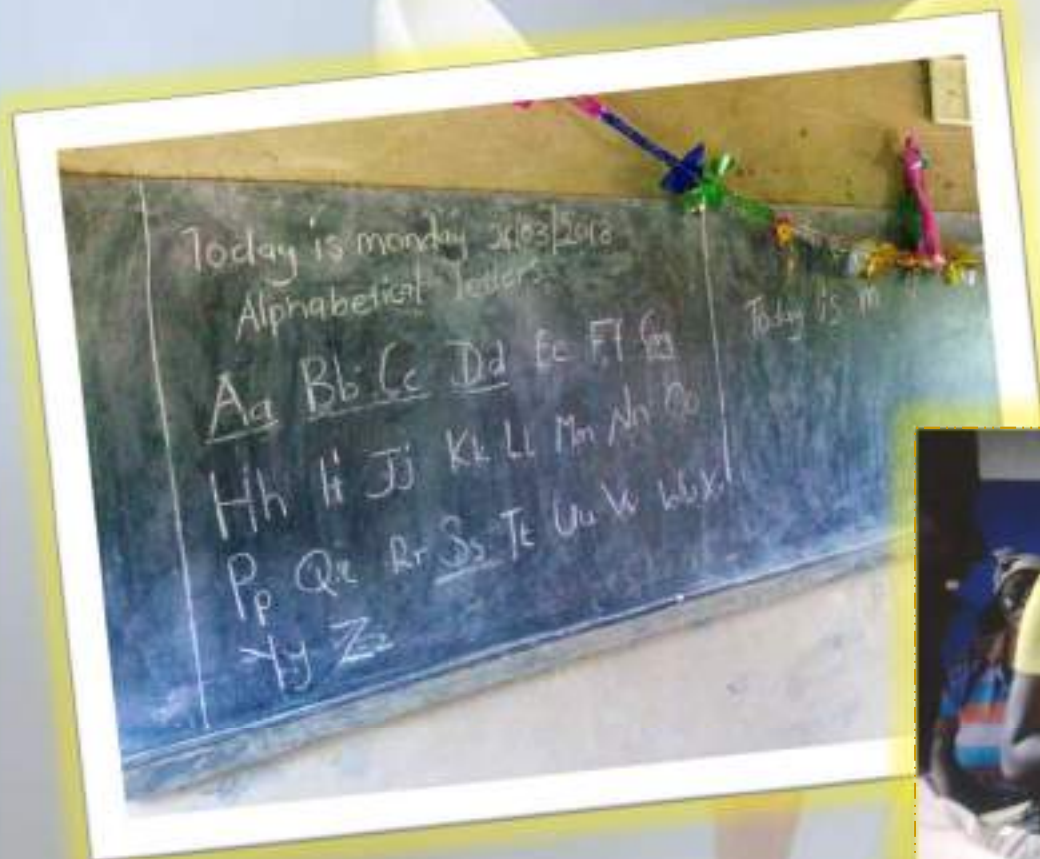 Today is monday 26/03/2018
Alphabetical letters
Aa Bb Cc Dd Ee Ff Gg
Hh Ii Jj Kk Ll Mm Nn Oo
Pp Qq Rr Ss Tt Uu Vv Ww Xx
Yy Zz
Today is m